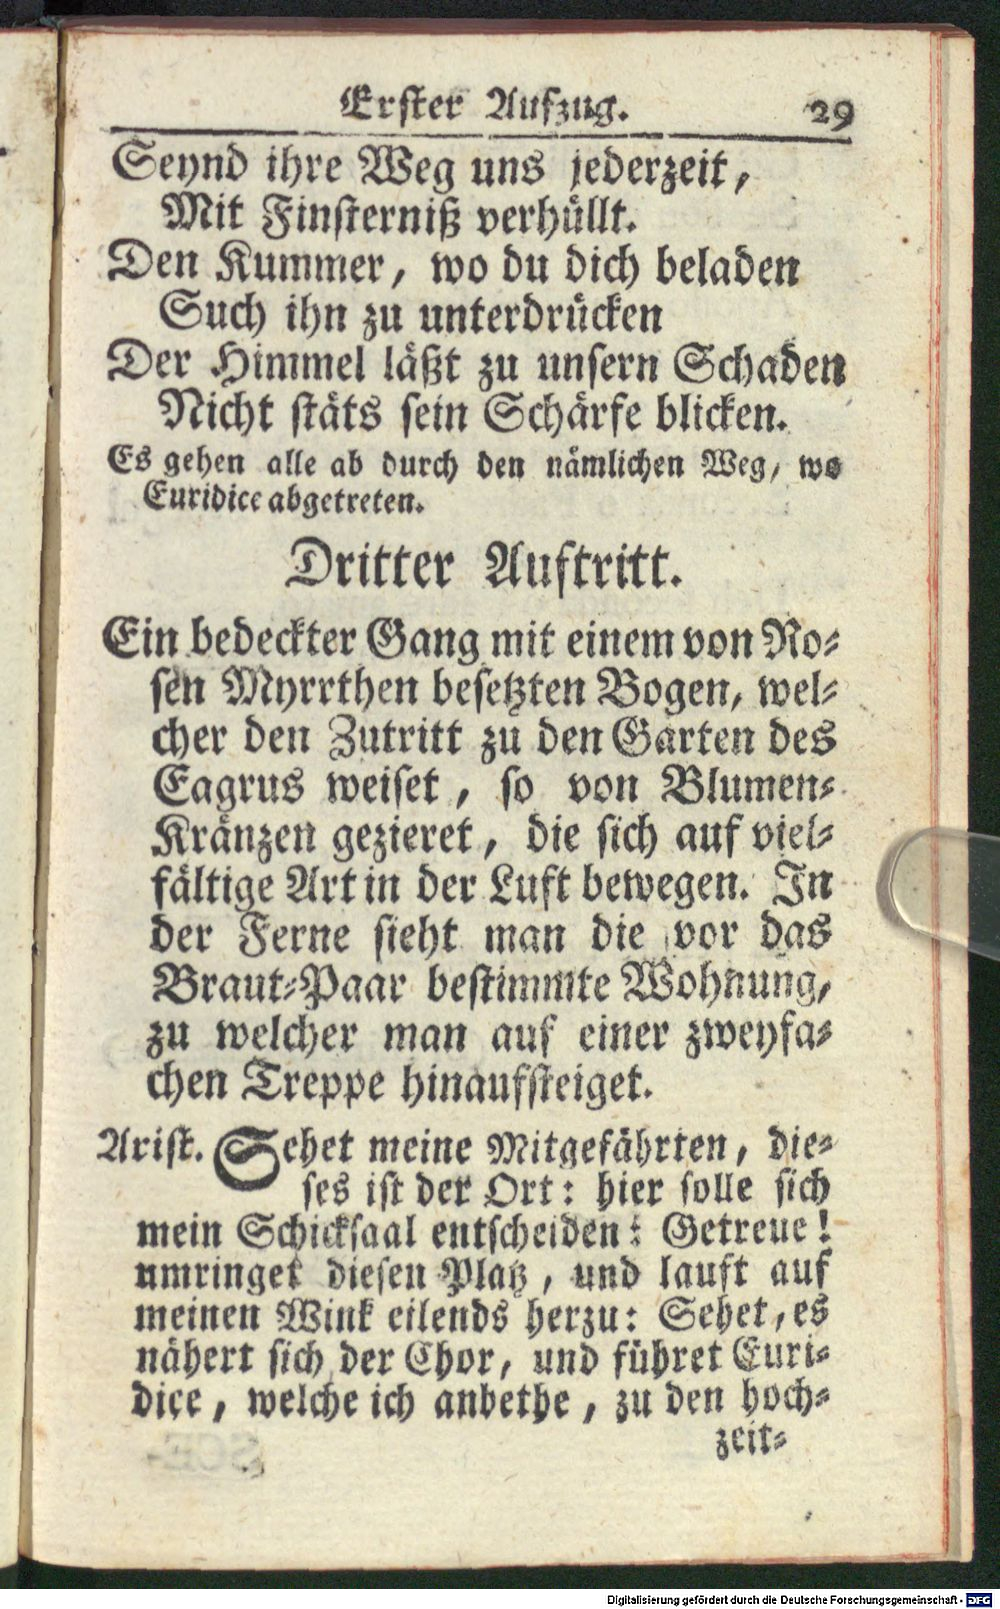 Erster Aufzug. 29
Seynd ihre Weg uns jederzeit,
Mit Finsterniß verhüllt.
Den Kummer, wo du dich beladen
Such ihn zu unterdrücken
Der Himmel läßt zu unsern Schaden
Nicht stäts sein Schärfe blicken.
Es gehen alle ab durch den nämlichen Weg, wo
Euridice abgetreten.
Dritter Auftritt.
Ein bedeckter Gang mit einem von Ro-
sen Myrrthen besetzten Bogen, wel-
cher den Zutritt zu den Garten des
Eagrus weiset, so von Blumen-
Kränzen gezieret, die sich auf viel-
fältige Art in der Luft bewegen. In
der Ferne sieht man die vor das
Braut-Paar bestimmte Wohnung,
zu welcher man auf einer zweyfa-
chen Treppe hinaufsteiget.
Arist. Sehet meine Mitgefährten, die-
ses ist der Ort: hier solle sich
mein Schicksaal entscheiden: Getreue!
umringet diesen Platz, und lauft auf
meinen Wink eilends herzu: Sehet, es
nähert sich der Chor, und führet Euri-
dice, welche ich anbethe, zu den hoch-
zeit-
Digitalisierung gefördert durch die Deutsche Forschungsgemeinschaft - DFG